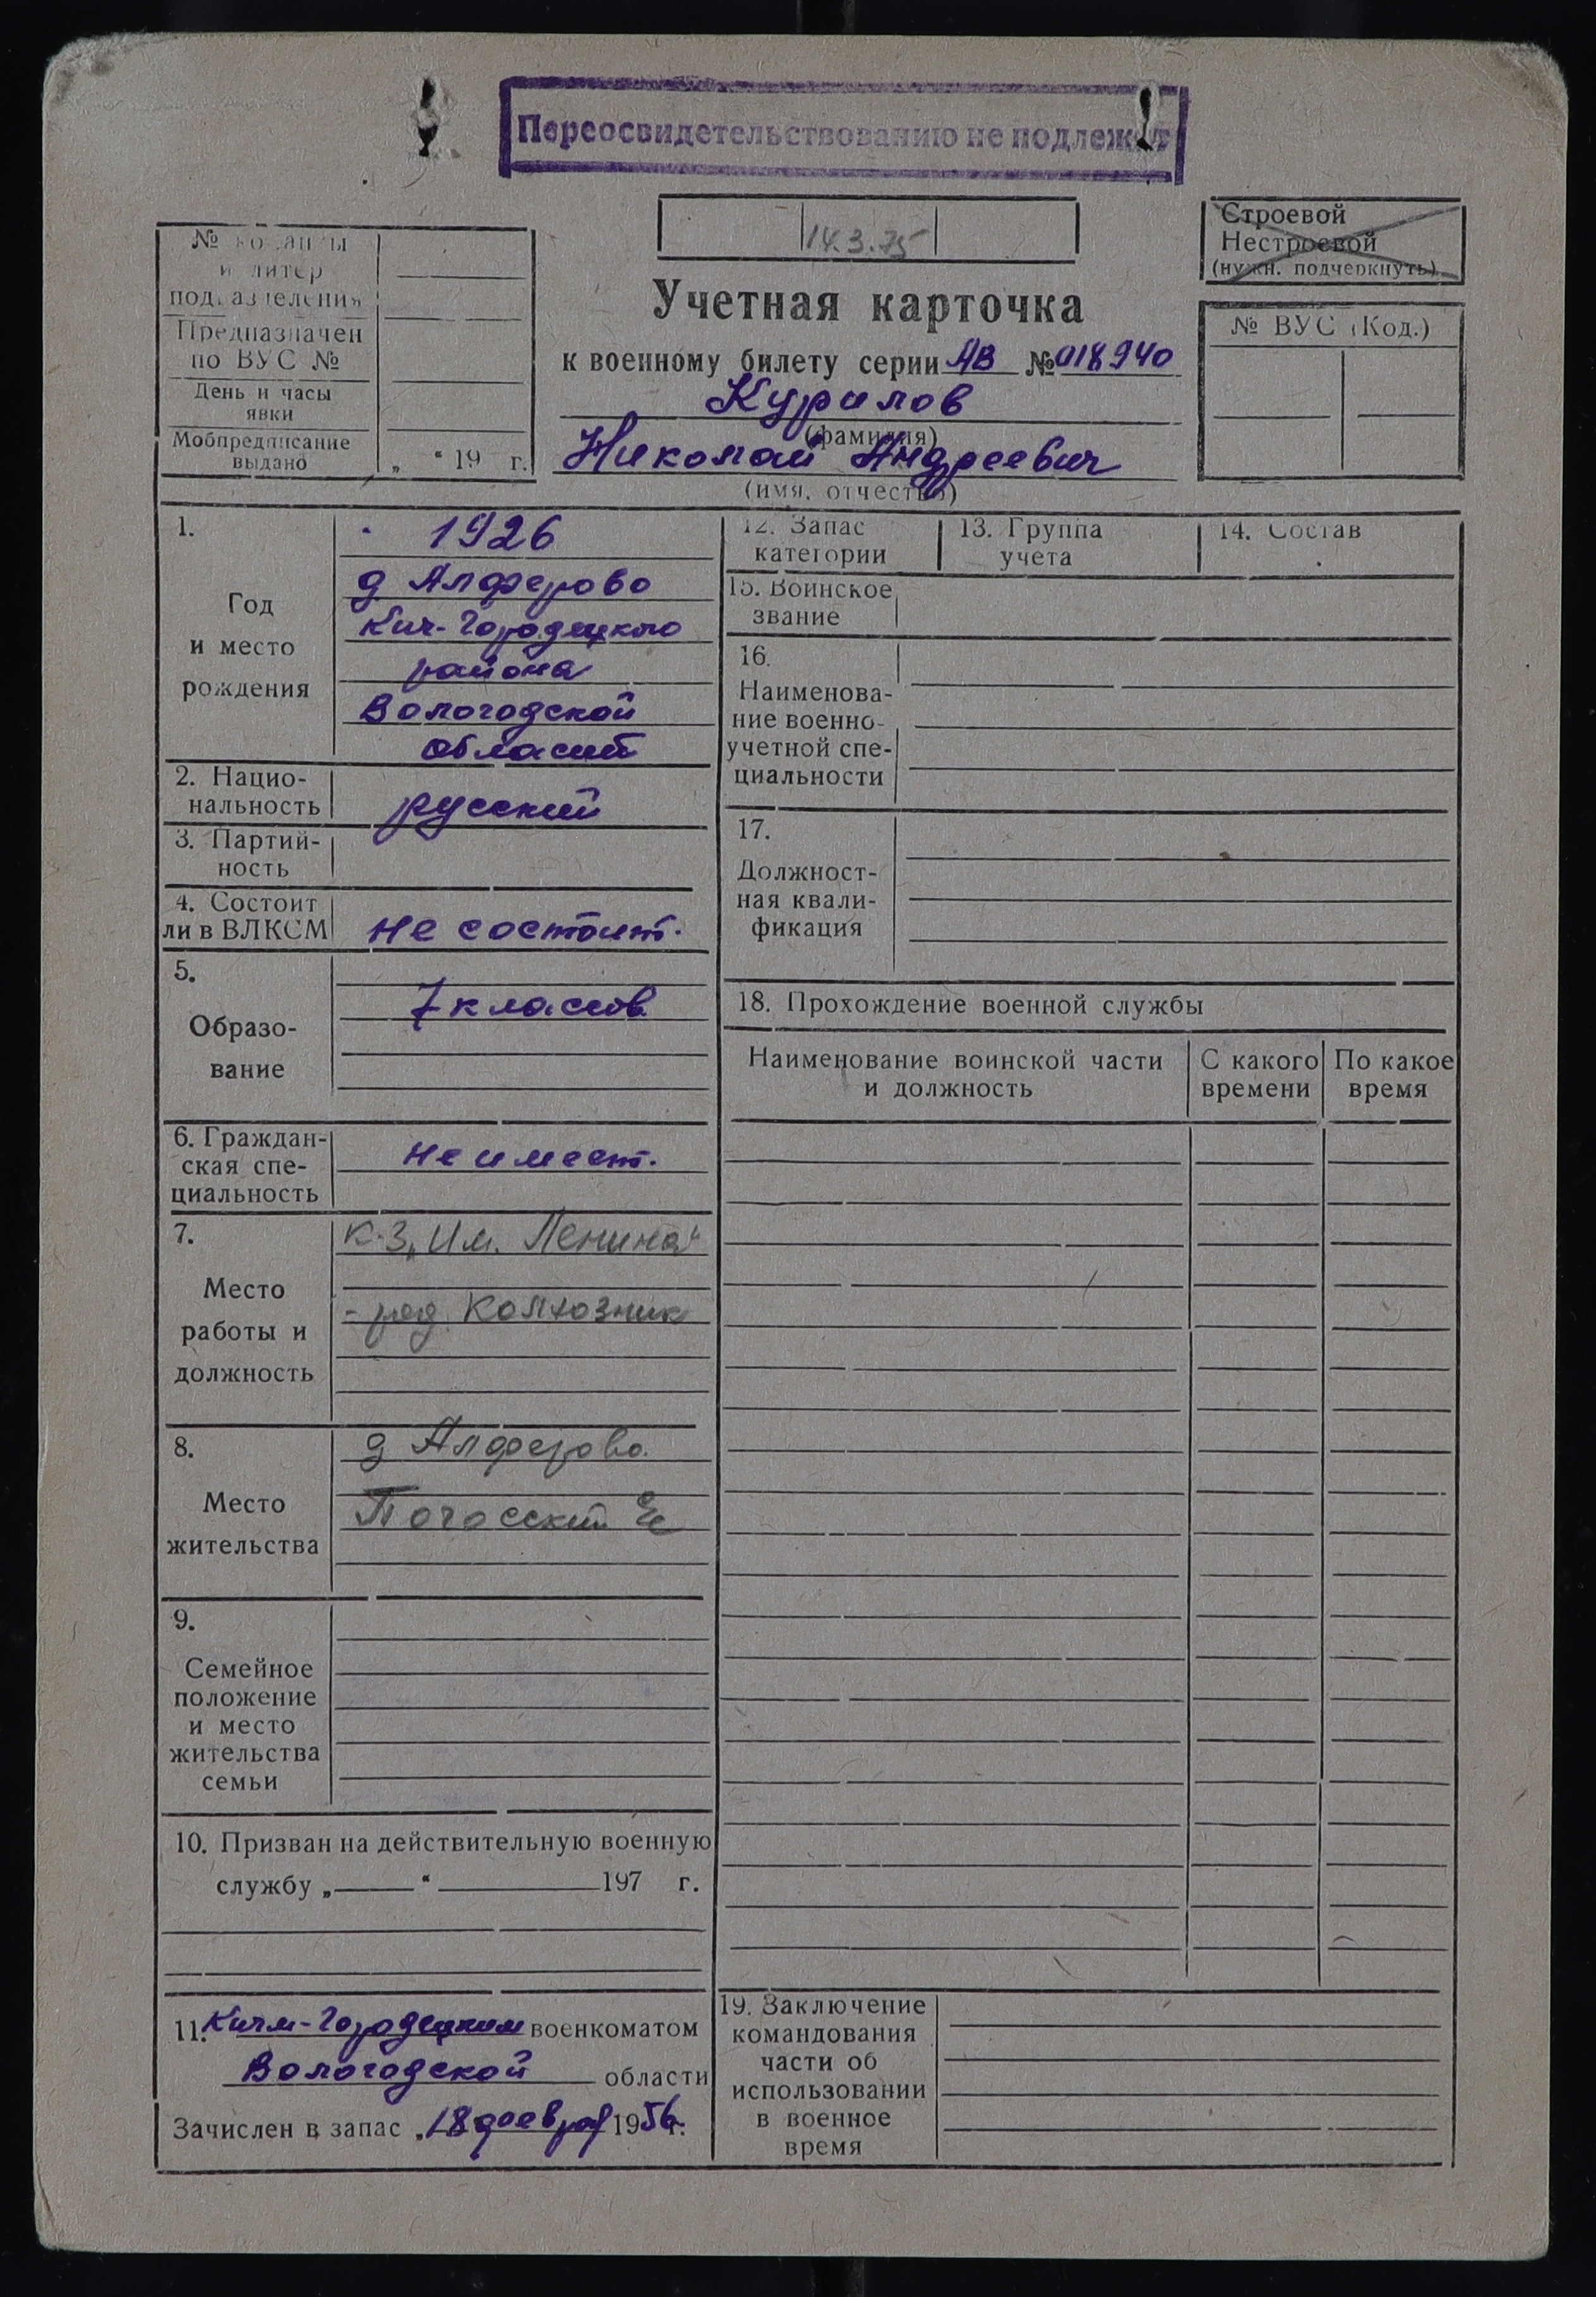 Переосвидетельствованию не подлежит
14.3.75
Строевой
Нестроевой
(нужн. подчеркнуть)
№ команды
и литер
подразделения
Предназначен
по ВУС №
День и часы
явки
Мобпредписание
выдано
„ “ 19 г.
Учетная карточка
к военному билету серии АВ № 018940
Курилов
(фамилия)
Николай Андреевич
(имя, отчество)
№ ВУС (Код.)
1.
Год
и место
рождения
1926
д Алферово
Кич-Городецкого
района
Вологодской
области
2. Нацио-
нальность
русский
3. Партий-
ность
4. Состоит
ли в ВЛКСМ
не состоит.
5.
Образо-
вание
7 классов
6. Граждан-
ская спе-
циальность
не имеет.
7.
Место
работы и
должность
к-з „Им. Ленина“
- ряд. колхозник
8.
Место
жительства
д Алферово.
9.
Семейное
положение
и место
жительства
семьи
10. Призван на действительную военную
службу „ “ 197 г.
11. Кичм-Городецким военкоматом
Вологодской области
Зачислен в запас „18 февраля 1956 г.
12. Запас
категории
13. Группа
учета
14. Состав
15. Воинское
звание
16.
Наименова-
ние военно-
учетной спе-
циальности
17.
Должност-
ная квали-
фикация
18. Прохождение военной службы
Наименование воинской части
и должность
С какого
времени
По какое
время
19. Заключение
командования
части об
использовании
в военное
время